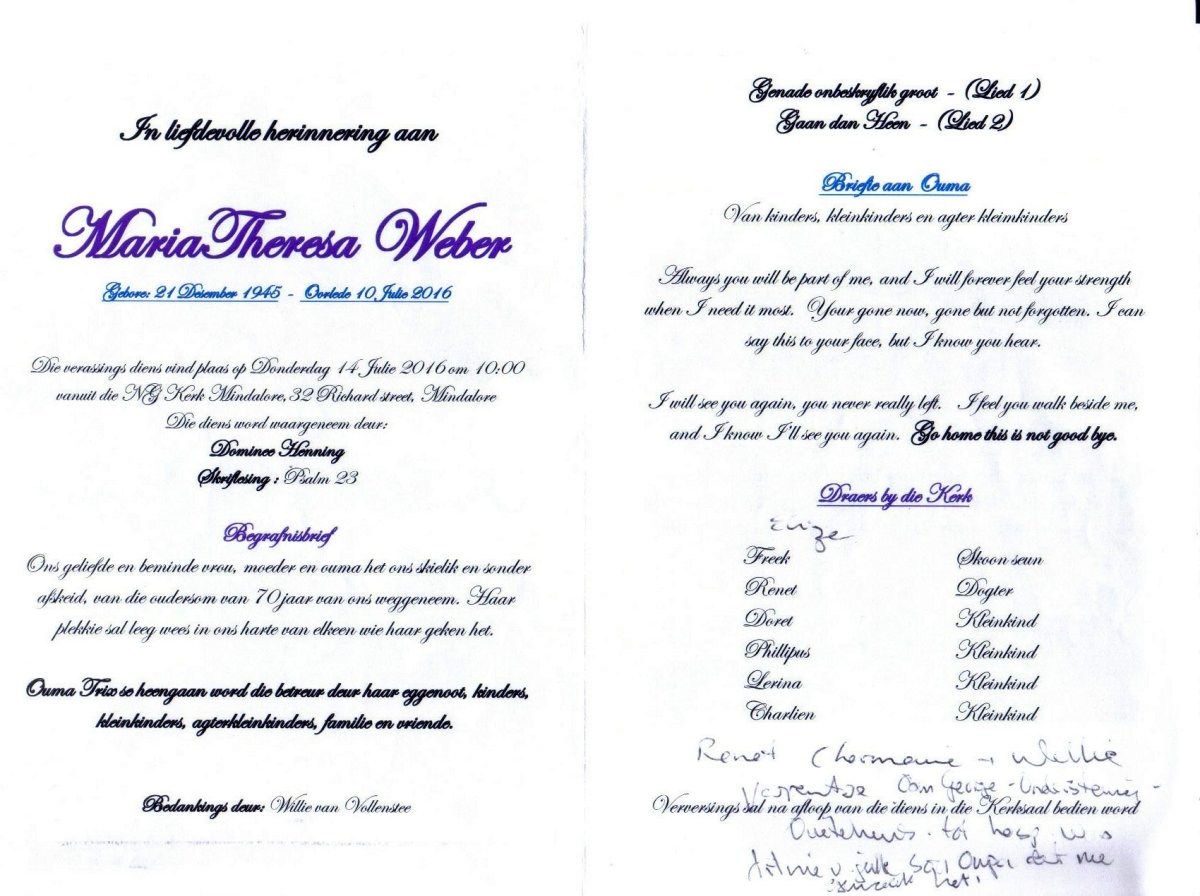 In liefdevolle herinnering aan
MariaTheresa Weber
Gebore: 21 Desember 1945 - Oorlede 10 Julie 2016
Die verassings diens vind plaas op Donderdag 14 Julie 2016 om 10:00
vanuit die NG Kerk Mindalore, 32 Richard street, Mindalore
Die diens word waargeneem deur:
Dominee Henning
Skriflesing : Psalm 23
Begrafnisbrief
Ons geliefde en beminde vrou, moeder en ouma het ons skielik en sonder
afskeid, van die oudersom van 70 jaar van ons weggeneem. Haar
plekkie sal leeg wees in ons harte van elkeen wie haar geken het.
Ouma Trix se heengaan word die betreur deur haar eggenoot, kinders,
kleinkinders, agterkleinkinders, familie en vriende.
Bedankings deur: Willie van Vollenstee
Genade onbeskryflik groot - (Lied 1)
Gaan dan Heen - (Lied 2)
Briefie aan Ouma
Van kinders, kleinkinders en agter kleimkinders
Always you will be part of me, and I will forever feel your strength
when I need it most. Your gone now, gone but not forgotten. I can
say this to your face, but I know you hear.
I will see you again, you never really left. I feel you walk beside me,
and I know I'll see you again. Go home this is not good bye.
Draers by die Kerk
Freek Skoon seun
Renet Dogter
Doret Kleinkind
Phillipus Kleinkind
Lerina Kleinkind
Charlien Kleinkind
Renet Charmaine + Willie
Oom George
Verversings sal na afloop van die diens in die Kerksaal bedien word
julle Oupa